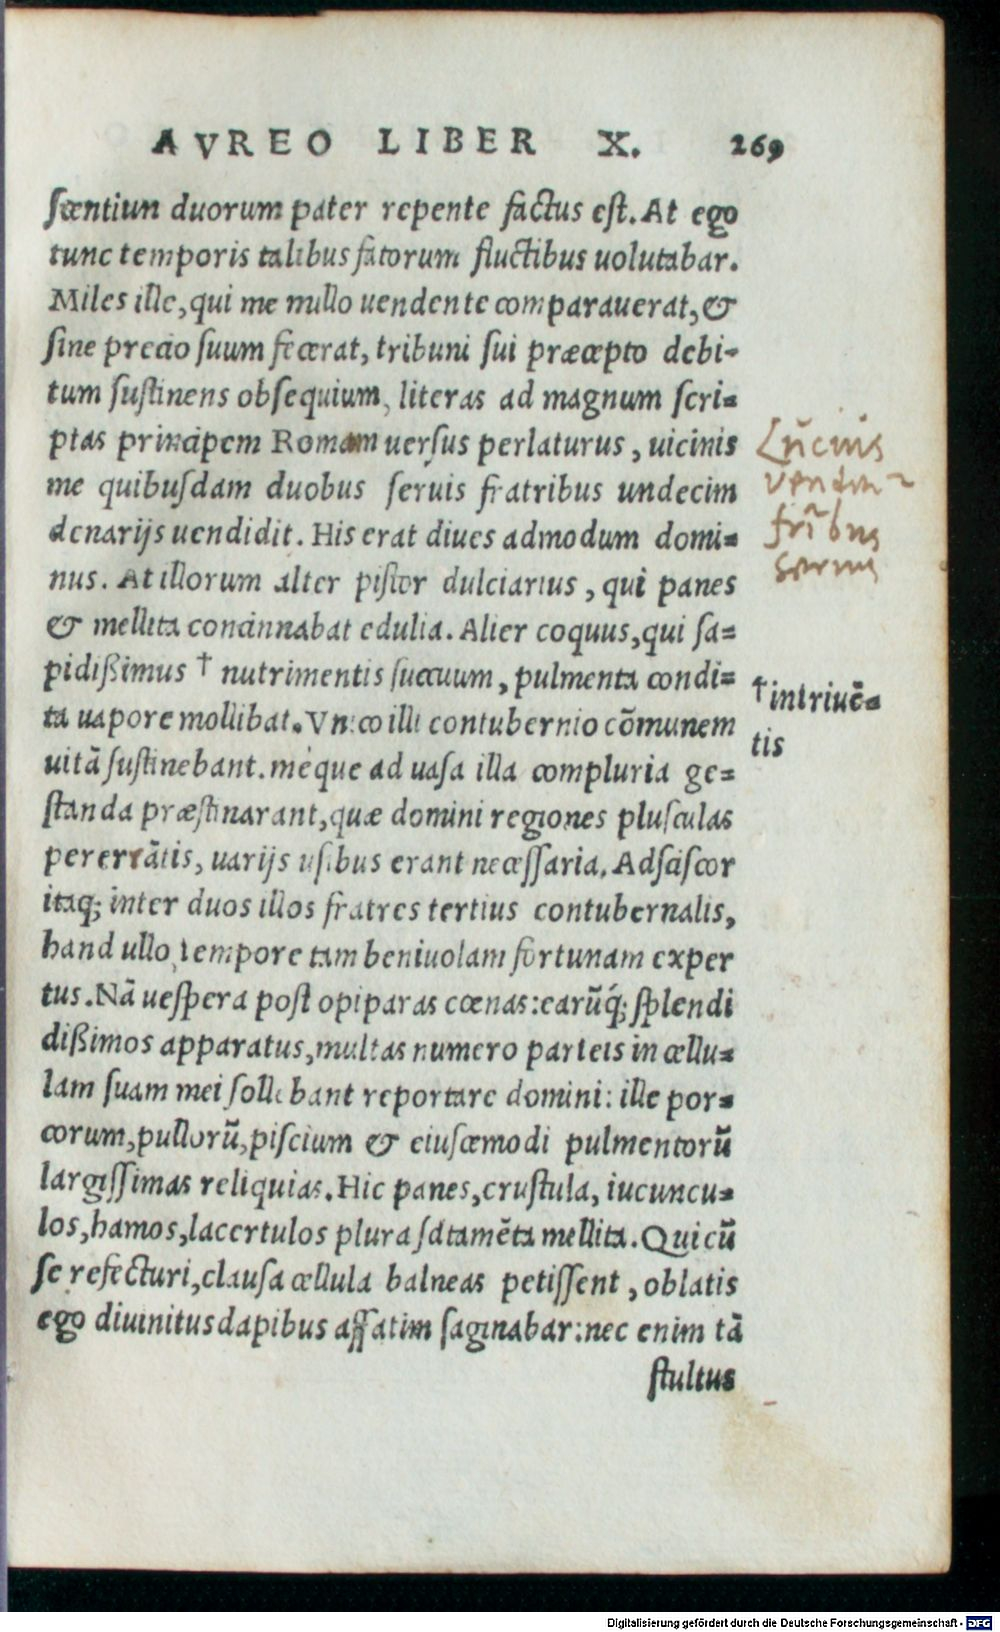 AVREO LIBER X. 269
scentiun duorum pater repente factus est. At ego
tunc temporis talibus fatorum fluctibus uolutabar.
Miles ille, qui me nullo uendente comparauerat, &
sine precio suum fecerat, tribuni sui præcepto debi-
tum sustinens obsequium, literas ad magnum scri-
ptas principem Romam uersus perlaturus, uicinis
me quibusdam duobus seruis fratribus undecim
denarijs uendidit. His erat diues admodum domi-
nus. At illorum alter pistor dulciarius, qui panes
& mellita concinnabat edulia. Alter coquus, qui sa-
pidißimus † nutrimentis succuum, pulmenta condi-
ta uapore mollibat. Vnico illi contubernio cõmunem
uitã sustinebant. méque ad uasa illa compluria ge-
standa præstinarant, quæ domini regiones plusculas
pererrãtis, uarijs usibus erant necessaria. Adsciscor
itaq; inter duos illos fratres tertius contubernalis,
haud ullo tempore tam beniuolam fortunam exper
tus. Nã uespera post opiparas cœnas: earũq́; splendi
dißimos apparatus, multas numero parteis in cellu-
lam suam mei sollebant reportare domini: ille por-
corum, pullorũ, piscium & eiuscemodi pulmentorũ
largissimas reliquias. Hic panes, crustula, iucuncu-
los, hamos, lacertulos plura scitamẽta mellita. Qui cũ
se refecturi, clausa cellula balneas petissent, oblatis
ego diuinitus dapibus affatim saginabar: nec enim tã
stultus
Lucius
vendit
frībus
servis
† intriuẽ-
tis
Digitalisierung gefördert durch die Deutsche Forschungsgemeinschaft - DFG